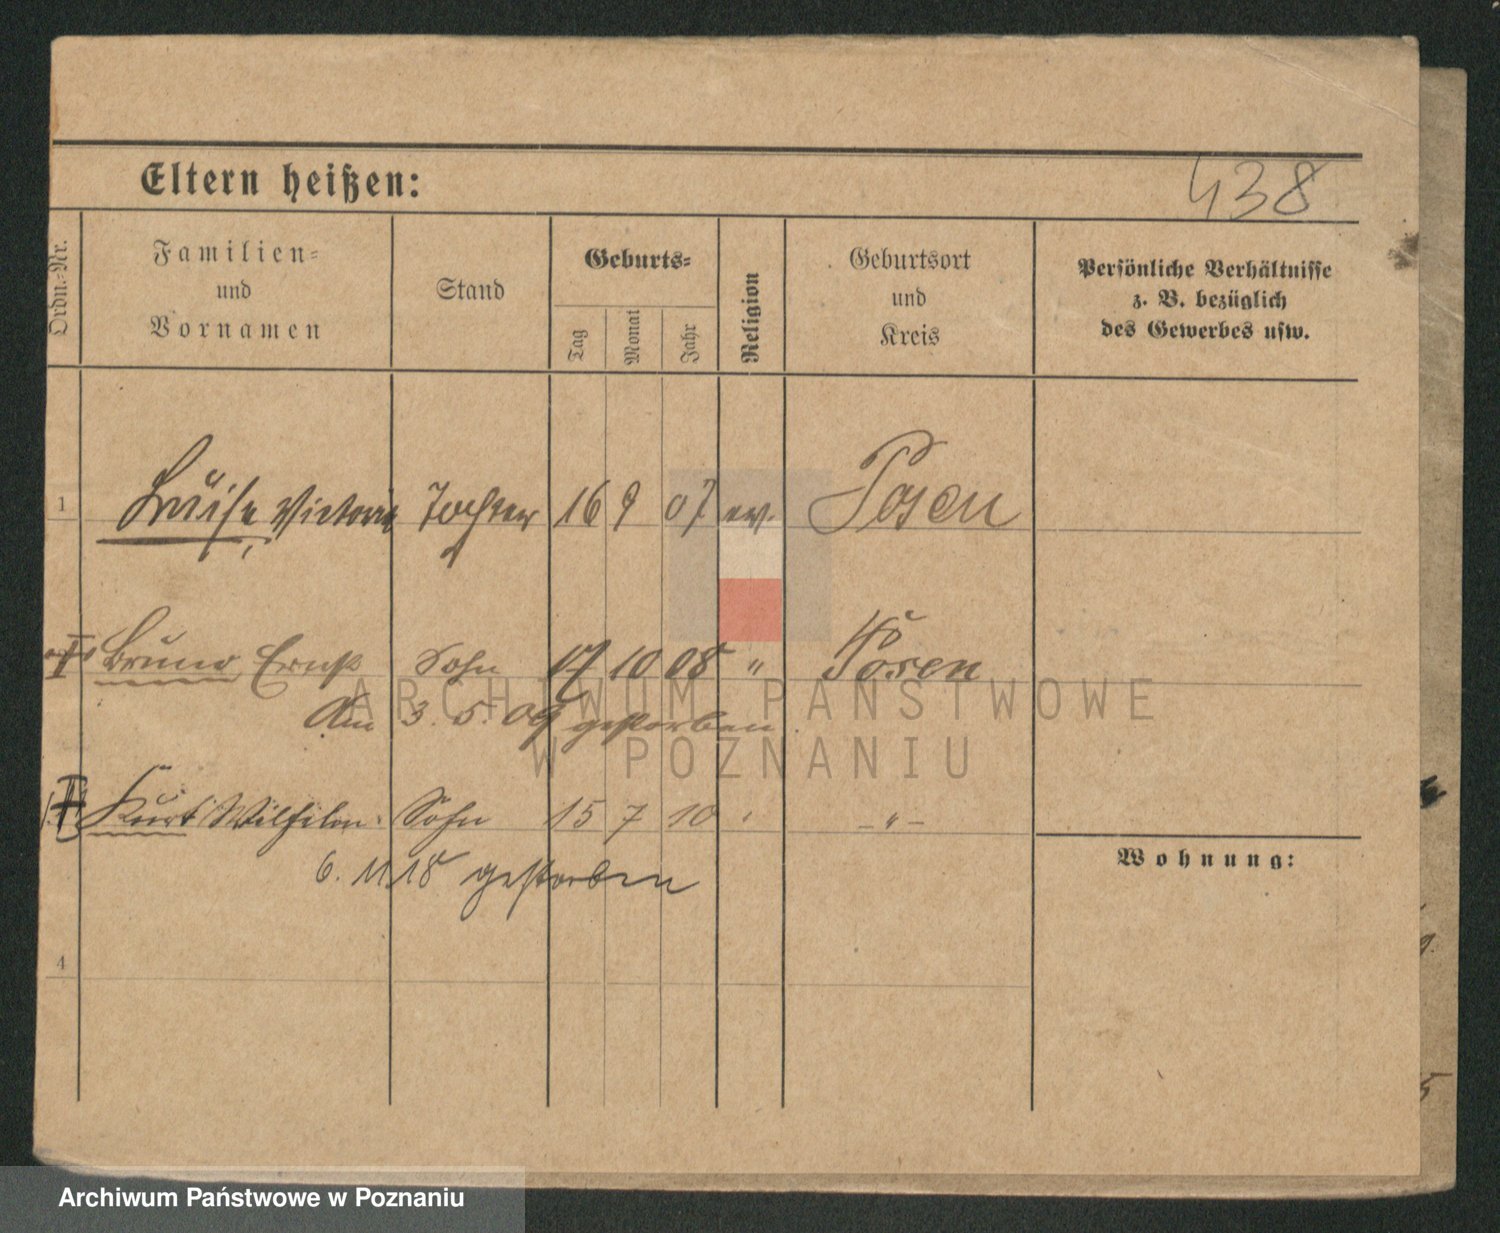 Eltern heißen:
438
Ordn.-Nr.
Familien-
und
Vornamen
Stand
Geburts-
Tag
Monat
Jahr
Religion
Geburtsort
und
Kreis
Persönliche Verhältnisse
z. B. bezüglich
des Gewerbes usw.
1 Luise, Victoria Tochter 16 9 07 ev. Posen
Bruno Ernst Sohn 17 10 08 " Posen
Am 3. 5. 09 gestorben
Kurt Wilhelm Sohn 15 7 10 " - " -
6. 11. 18 gestorben
Wohnung:
4
ARCHIWUM PAŃSTWOWE
W POZNANIU
Archiwum Państwowe w Poznaniu